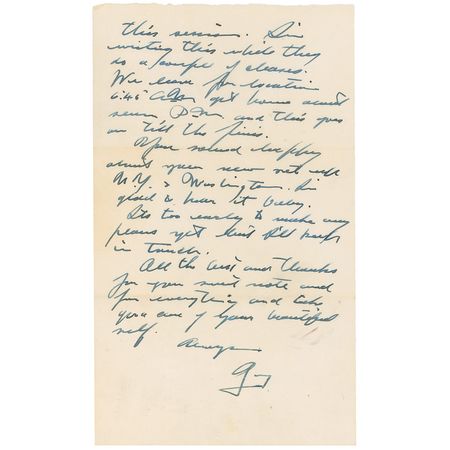 this session. I'm
writing this while they
do a couple of closeups.
We leave for location
6:45 A.M. get home about
seven P.M. and this goes
on till the finis.
You sound happy
about your new set up
N.Y. & Washington. I'm
glad to hear it baby.
Its too early to make any
plans yet but I'll keep
in touch.
All the best and thanks
for your sweet note and
for everything and take
good care of your beautiful
self.
Always